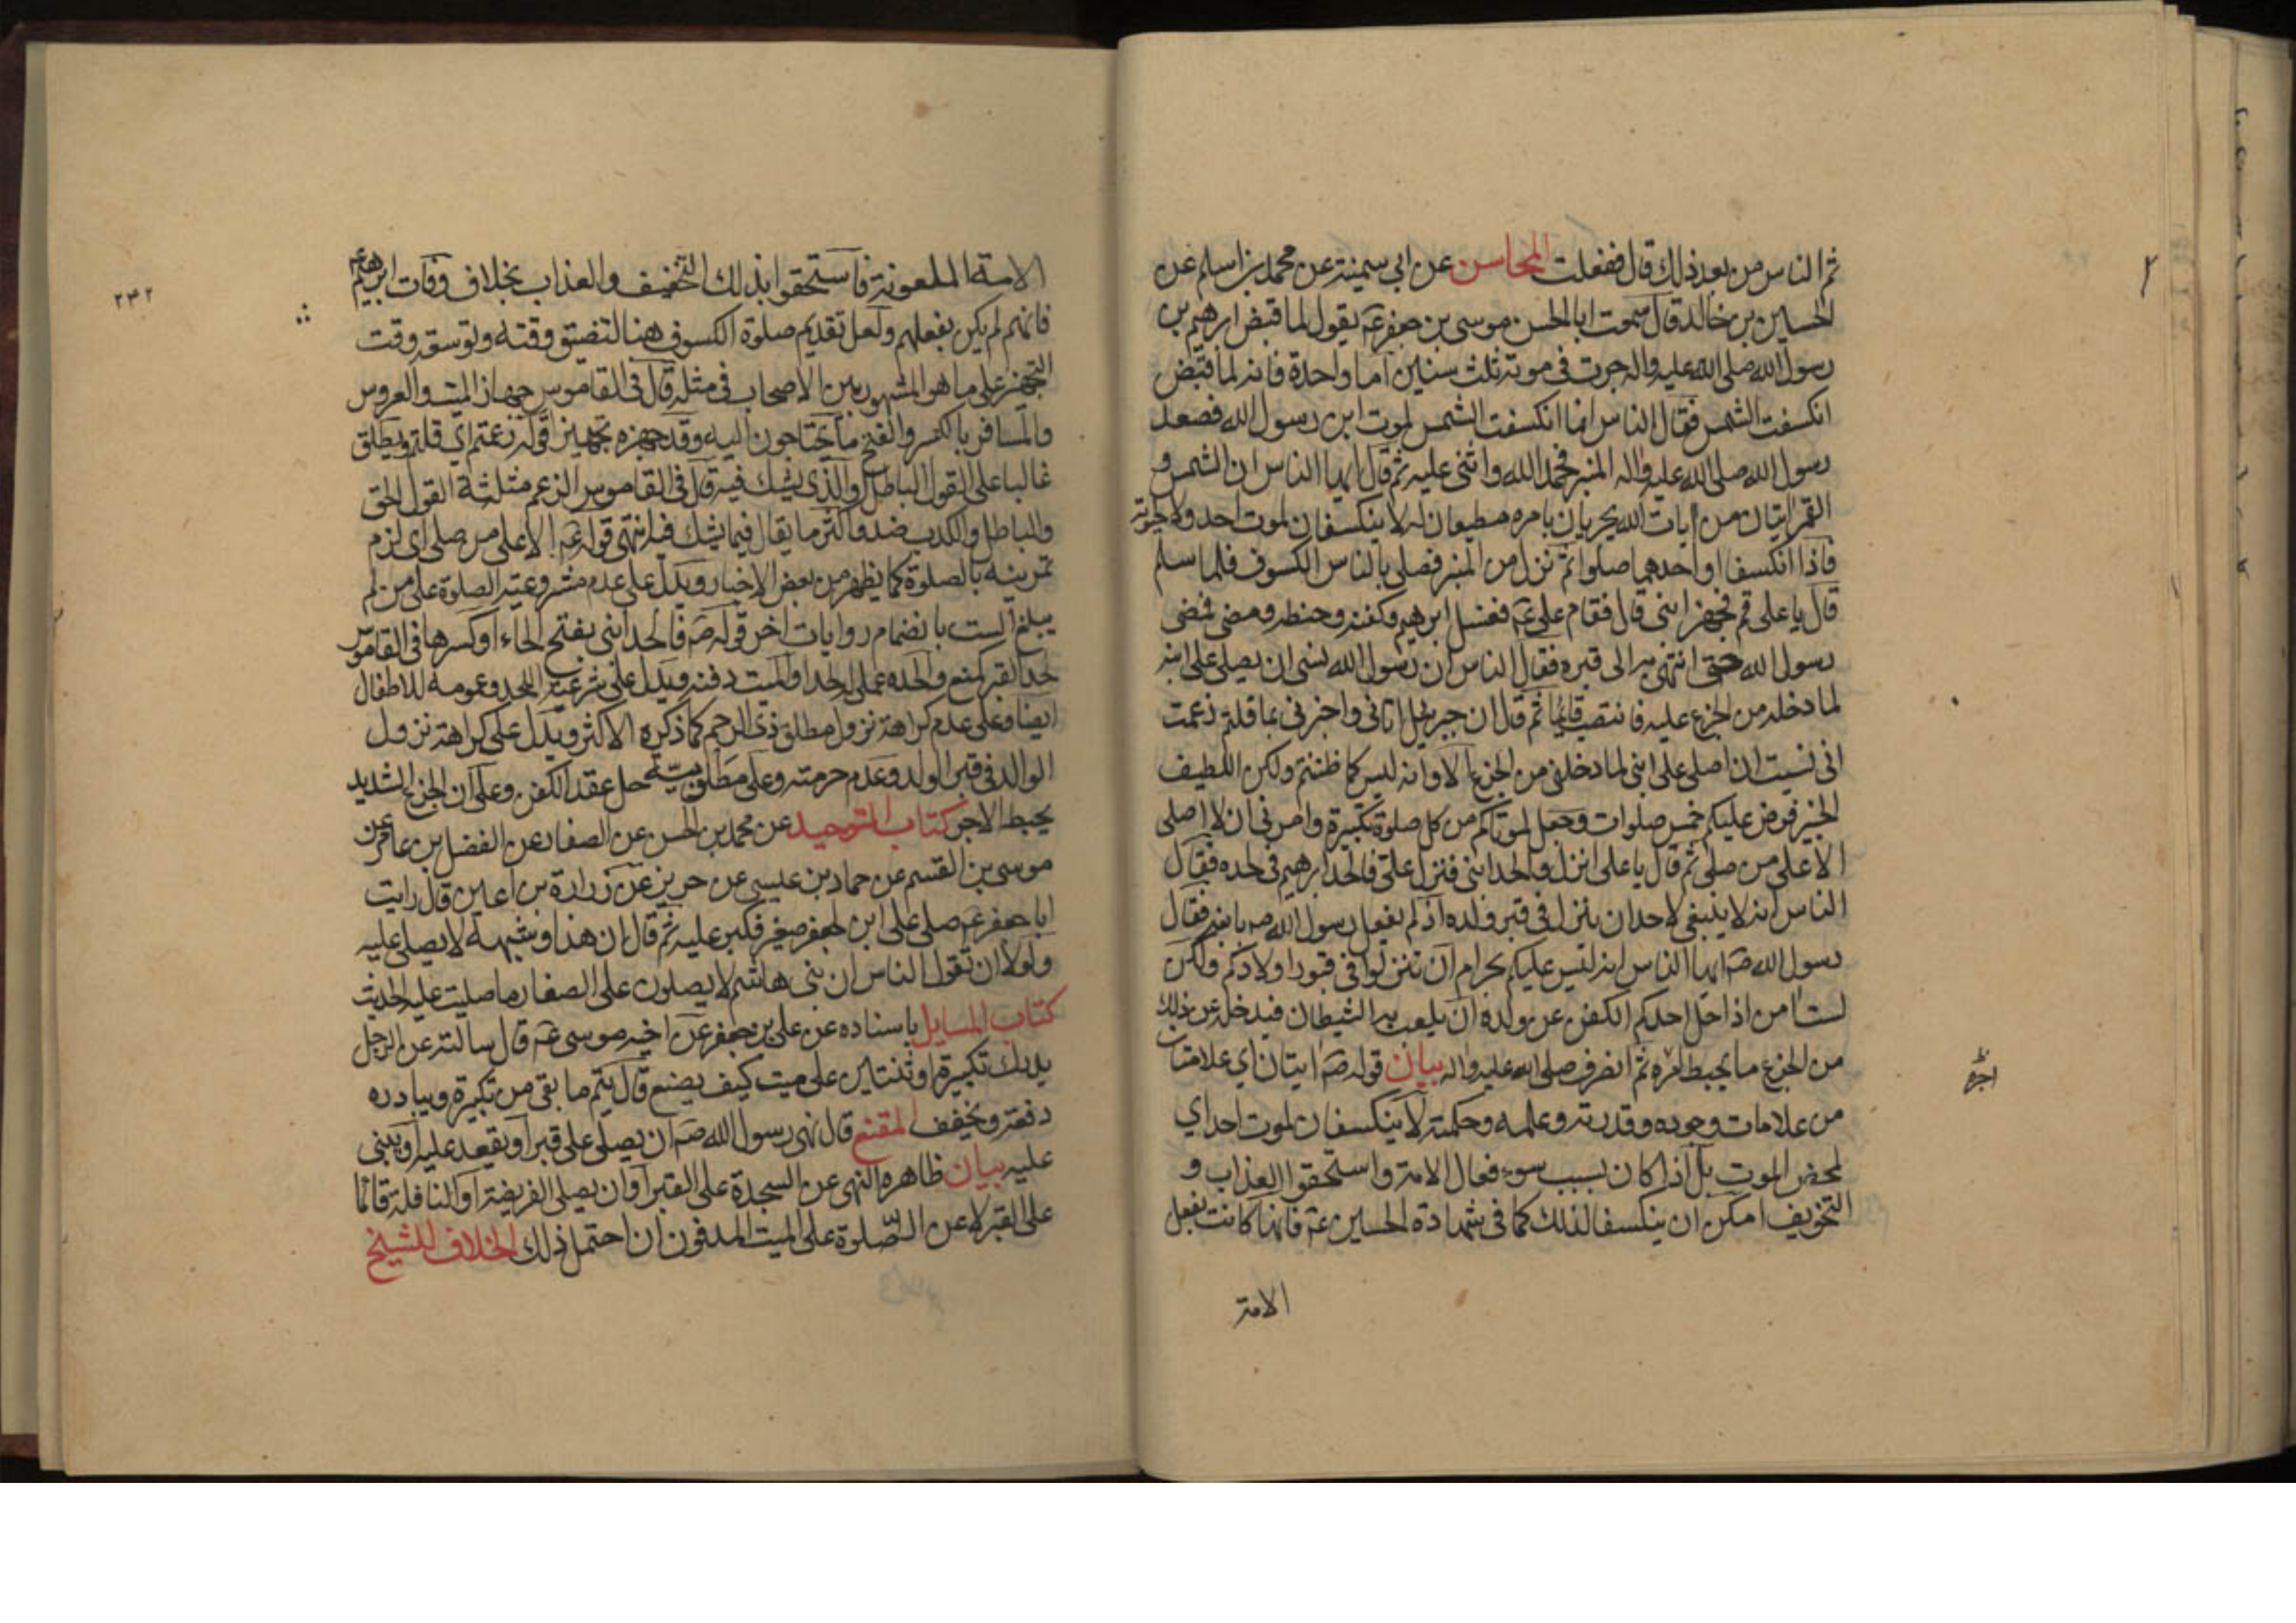 ثم الناس من بعد ذلك قال ففعلت المحاسن عن ابي سمينة عن محمد بن اسلم عن
الحسين بن خالد قال سمعت ابا الحسن موسى بن جعفر عم يقول لما قبض ابرهيم بن
رسول الله صلى الله عليه واله جرت في موته ثلث سنين اما واحدة فانه لما قبض
انكسفت الشمس فقال الناس انما انكسفت الشمس لموت ابن رسول الله فصعد
رسول الله صلى الله عليه واله المنبر فحمد الله واثنى عليه ثم قال ايها الناس ان الشمس و
القمر ايتان من ايات الله يجريان بامره مطيعان له لا ينكسفان لموت احد ولا لحيوته
فاذا انكسفا او احدهما صلوا ثم نزل من المنبر فصلى بالناس الكسوف فلما سلم
قال يا على قم فجهز ابنى قال فقام على عم فغسل ابرهيم وكفنه وحنطه ومضى فمضى
رسول الله حتى انتهى به الى قبره فقال الناس ان رسول الله نسى ان يصلى على ابنه
لما دخله من الجزع عليه فانتصب قائما ثم قال ان جبرئيل اتانى واخبرنى بما قلتم زعمت
انى نسيت ان اصلى على ابنى لما دخلنى من الجزع الا وانه ليس كما ظننتم ولكن اللطيف
الخبير فرض عليكم خمس صلوات وجعل لموتاكم من كل صلوة تكبيرة وامرنى ان لا اصلى
الا على من صلى ثم قال يا على انزل والحد ابنى فنزل على فالحد ابرهيم في لحده فقال
الناس انه لا ينبغى لاحد ان ينزل فى قبر ولده اذ لم يفعل رسول الله صه بابنه فقال
رسول الله صه ايها الناس انه ليس عليكم بحرام ان تنزلوا فى قبور اولادكم ولكن
لست امن اذا حل احدكم الكفن عن ولده ان يلعب به الشيطان فيدخله عن ذلك
من الجزع ما يحبط اجره ثم انصرف صلى الله عليه واله بيان قوله صه ايتان اي علامتان
من علامات وجوده وقدرته وعلمه وحكمته لا ينكسفان لموت احد اي
لمحض الموت بل اذا كان بسبب سوء فعال الامة واستحقوا العذاب و
التخويف امكن ان ينكسفا لذلك كما فى شهادة الحسين عم فانها كانت بفعل
الامة
اجره
الامة الملعونة فاستحقوا بذلك التخفيف والعذاب بخلاف وفات ابرهيم عم
فانهم لم يكن بفعلهم ولعل تقديم صلوة الكسوف هنا لتضيق وقته وتوسعة وقت
التجهيز على ما هو المشهور بين الاصحاب فى مثله قال فى القاموس جهاز الميت والعروس
والمسافر بالكسر والفتح ما يحتاجون اليه وقد جهزه تجهيزا قوله زعمتم اي قلتم ويطلق
غالبا على القول الباطل او الذى يشك فيه قال فى القاموس الزعم مثلثة القول الحق
والباطل والكذب ضد واكثر ما يقال فيما يشك فيه انتهى قوله عم الا على من صلى اى لزم
تمرينه بالصلوة كما يظهر من بعض الاخبار ويدل على عدم مشروعية الصلوة على من لم
يبلغ الست بانضمام روايات اخر قوله صه فالحد ابنى بفتح الحاء او كسرها فى القاموس
لحد القبر كمنع والحده عمل له لحدا والميت دفنه ويدل على شرعية اللحد وعمومه للاطفال
ايضا وعلى عدم كراهة نزول مطلق ذى الرحم كما ذكره الاكثر ويدل على كراهة نزول
الوالد فى قبر الولد وعدم حرمته وعلى مطلوبية حل عقد الكفن وعلى ان الجزع الشديد
يحبط الاجر كتاب التوحيد عن محمد بن الحسن عن الصفار عن الفضل بن عامر عن
موسى بن القسم عن حماد بن عيسى عن حريز عن زرارة بن اعين قال رايت
ابا جعفر عم صلى على ابن لجعفر صغير فكبر عليه ثم قال ان هذا وشبهه لا يصلى عليه
ولولا ان تقول الناس ان بنى هاشم لا يصلون على الصغار ما صليت عليه الحديث
كتاب المسايل باسناده عن على بن جعفر عن اخيه موسى عم قال سالته عن الرجل
يدرك تكبيرة او ثنتين على ميت كيف يصنع قال يتم ما بقى من تكبيرة ويبادره
دفعة ويخفف المقنع قال نهى رسول الله صه ان يصلى على قبر او يقعد عليه او يبنى
عليه بيان ظاهره النهى عن السجدة على القبر او ان يصلى الفريضة او النافلة قائما
على القبر لا عن الصلوة على الميت المدفون ان احتمل ذلك الخلاف للشيخ
۲۴۲